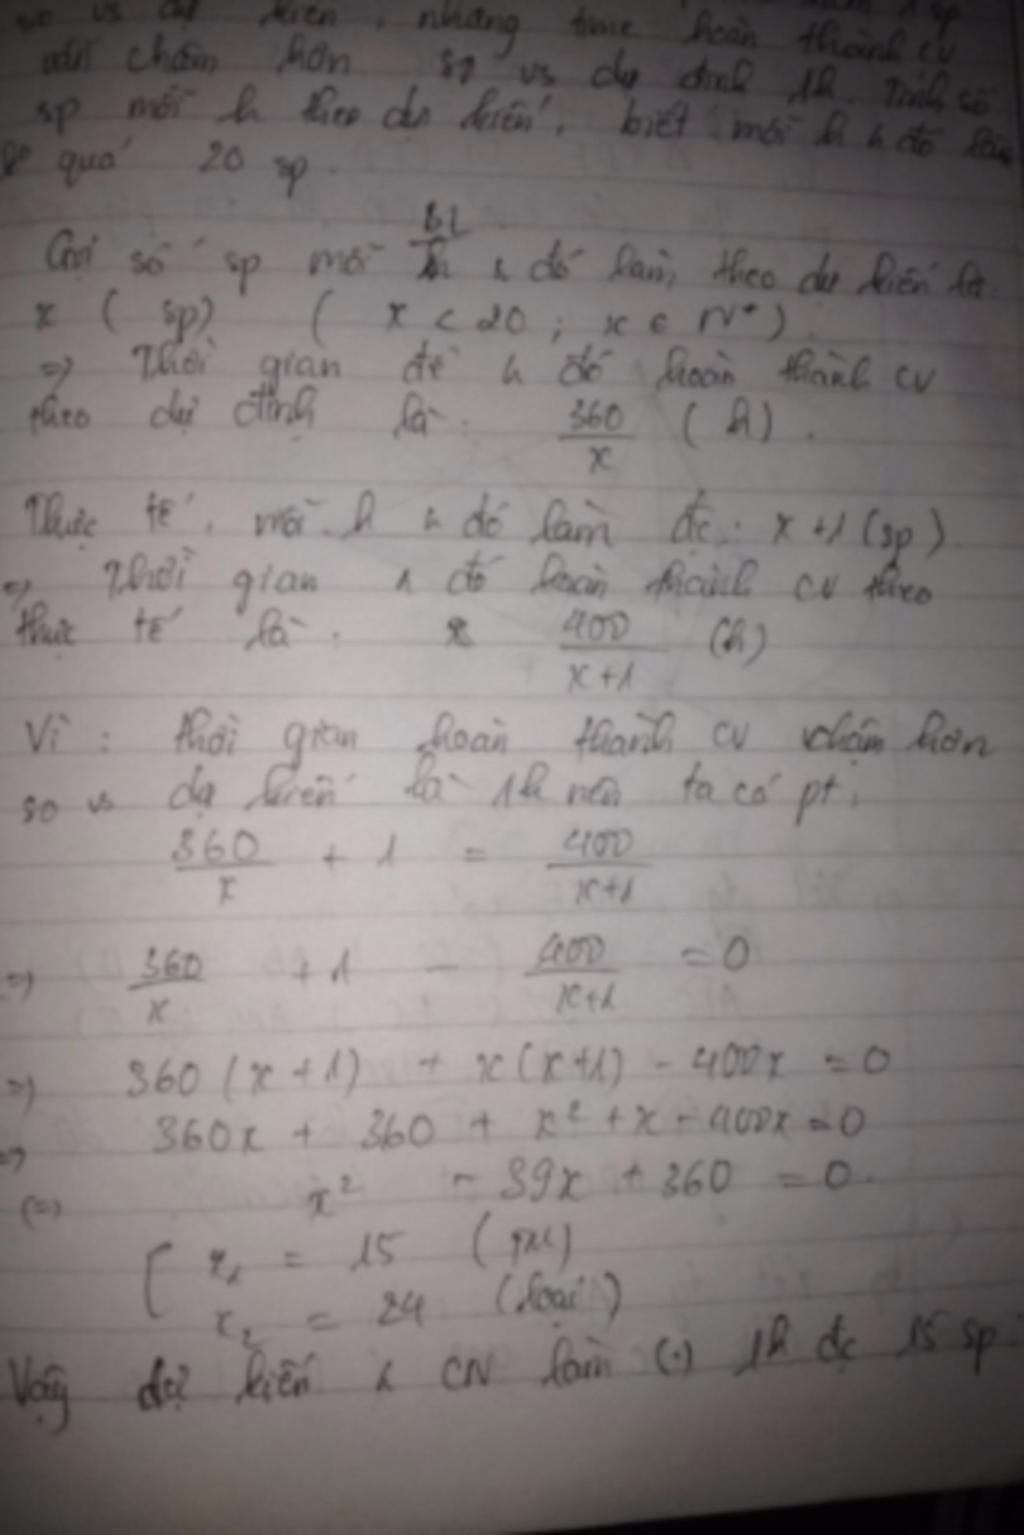 so vs dự kiến, nhưng time hoàn thành cv
vẫn chậm hơn so vs dự định 1h. Tính số
sp mỗi h theo dự kiến, biết mỗi h n đó làm
quá 20 sp.
BL
Gọi số sp mỗi h n đó làm theo dự kiến là
x ( sp) ( x < 20 ; x ∈ N*).
=> Thời gian để n đó hoàn thành cv
theo dự định là: 360/x (h).
Thực tế, mỗi h n đó làm đc: x+1 (sp)
=> Thời gian n đó hoàn thành cv theo
thực tế là: 400/x+1 (h)
Vì: thời gian hoàn thành cv chậm hơn
so vs dự kiến là 1h nên ta có pt:
360/x + 1 = 400/x+1
=> 360/x + 1 - 400/x+1 = 0
=> 360 (x + 1) + x(x+1) - 400x = 0
=> 360x + 360 + x² + x - 400x = 0
(=) x² - 39x + 360 = 0.
[ x₁ = 15 (TM)
x₂ = 24 (loại)
Vậy dự kiến n CN làm (.) 1h đc 15 sp